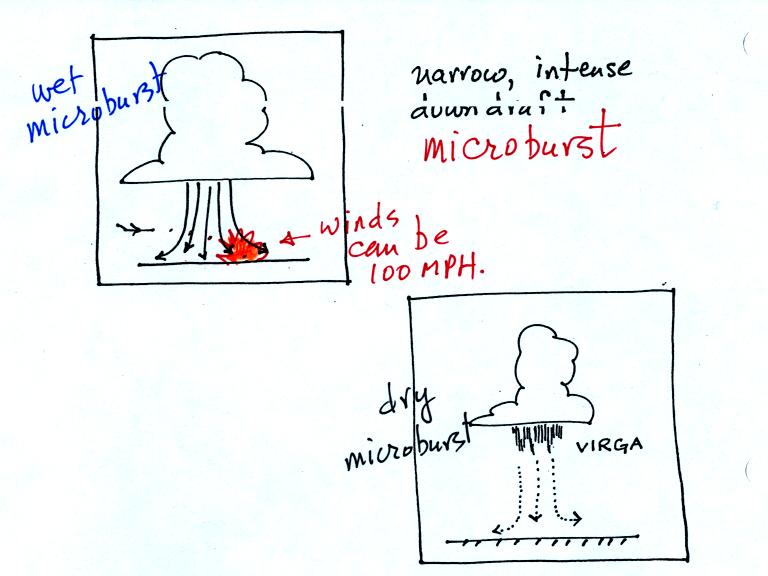 wet
microburst
narrow, intense
downdraft
microburst
winds
can be
100 MPH.
dry
microburst
VIRGA